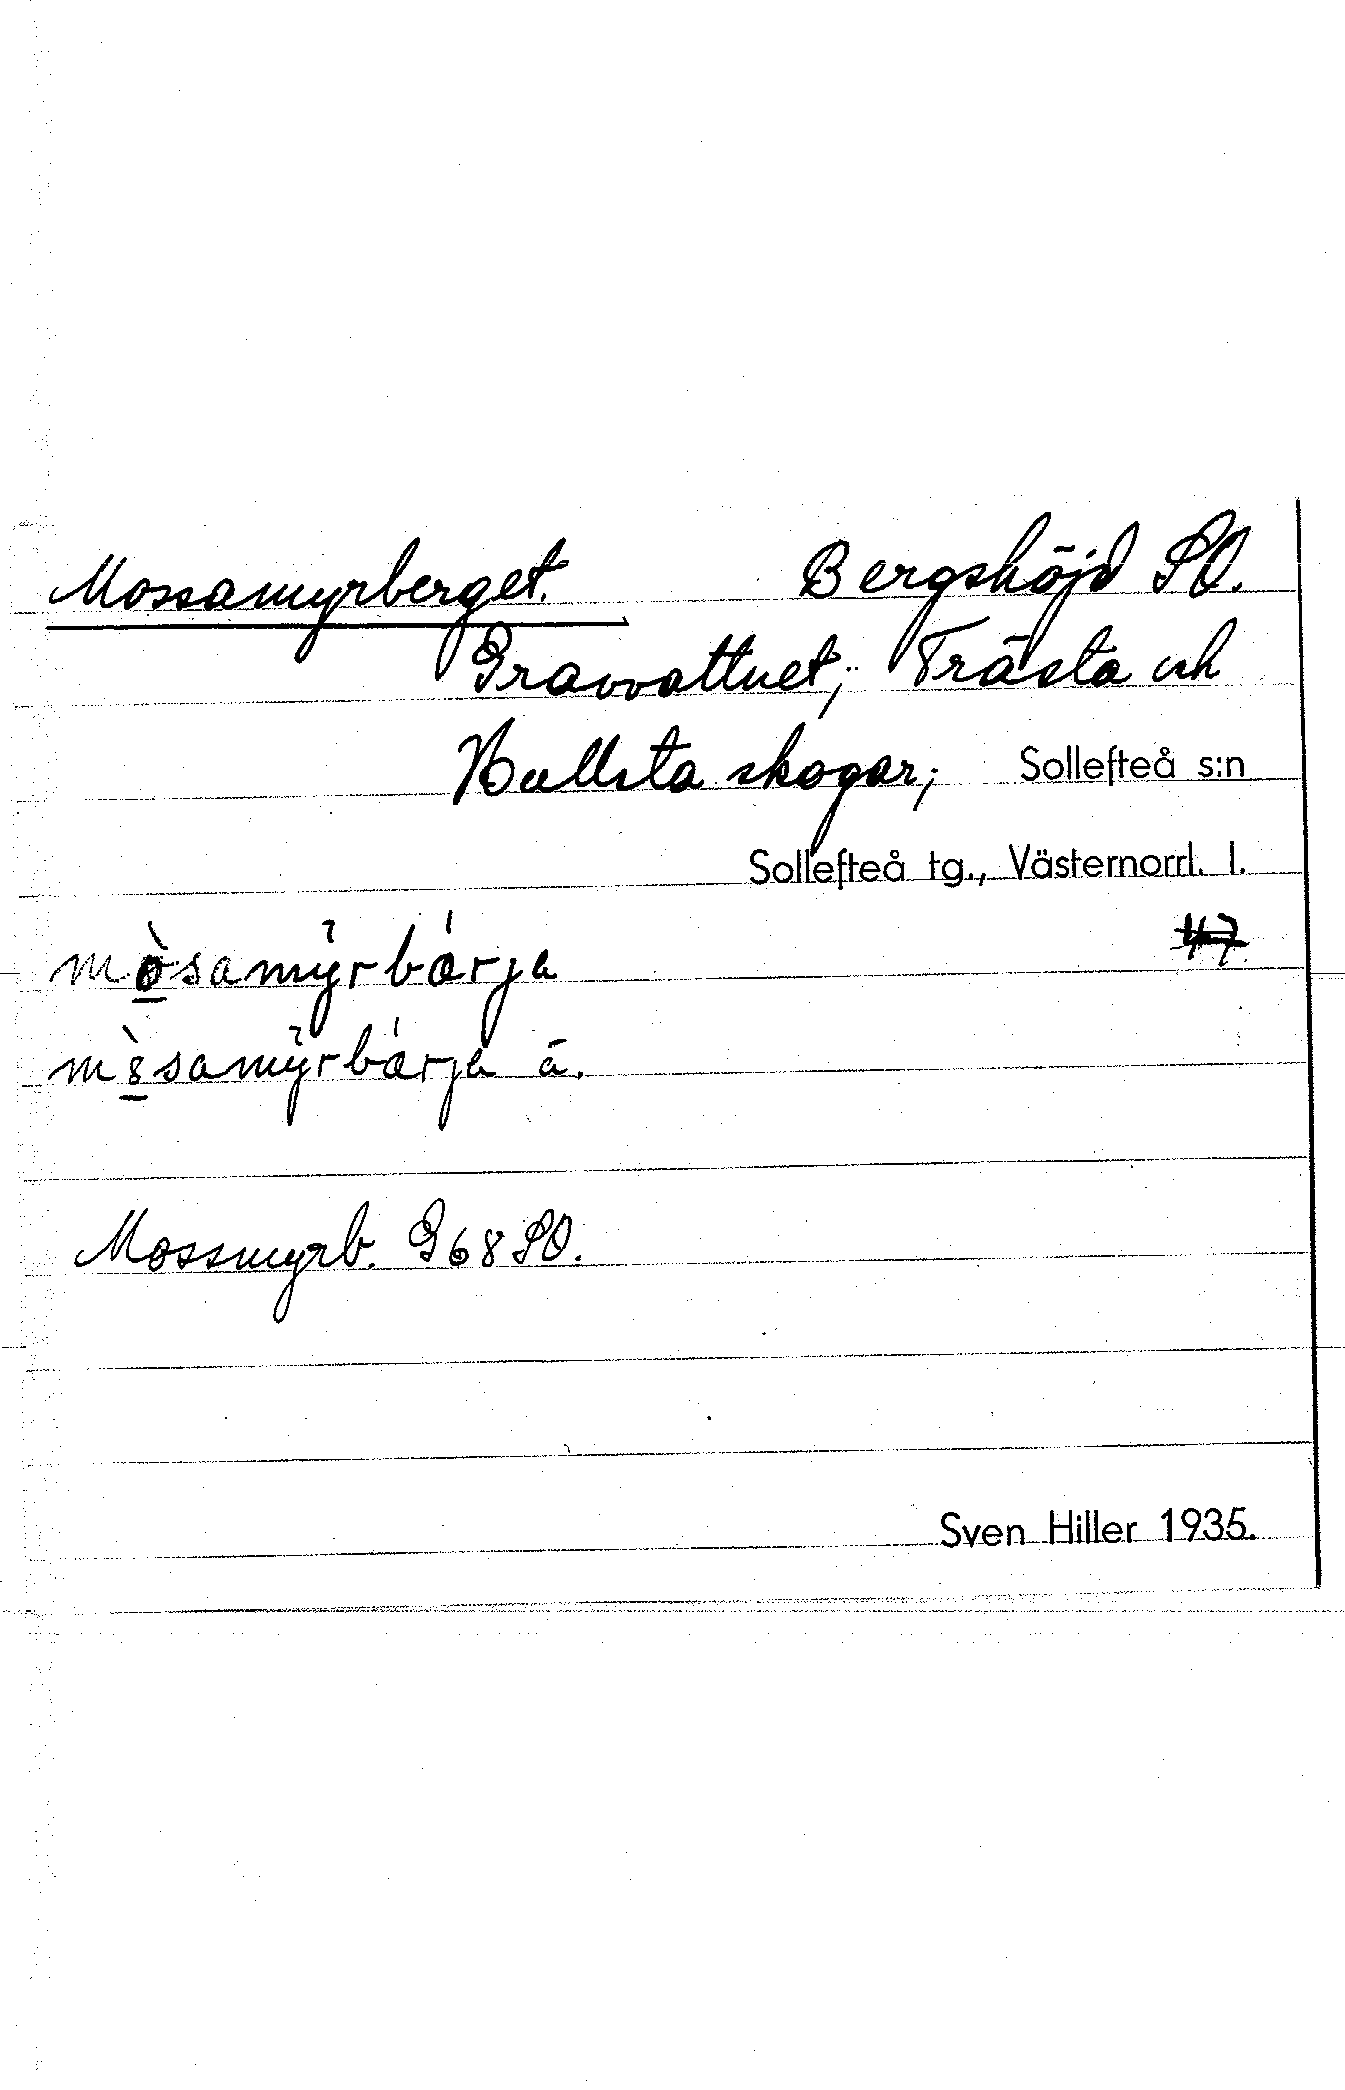 Mossamyrberget. Bergshöjd SO.
Gravvattnet; Trästa och
Hullsta skogar; Sollefteå s:n
Sollefteå tg., Västernorrl. l.
47
mòsamyrbárja
samyrbárja ä.
Mossmyrb. G68SO.
Sven Hiller 1935.